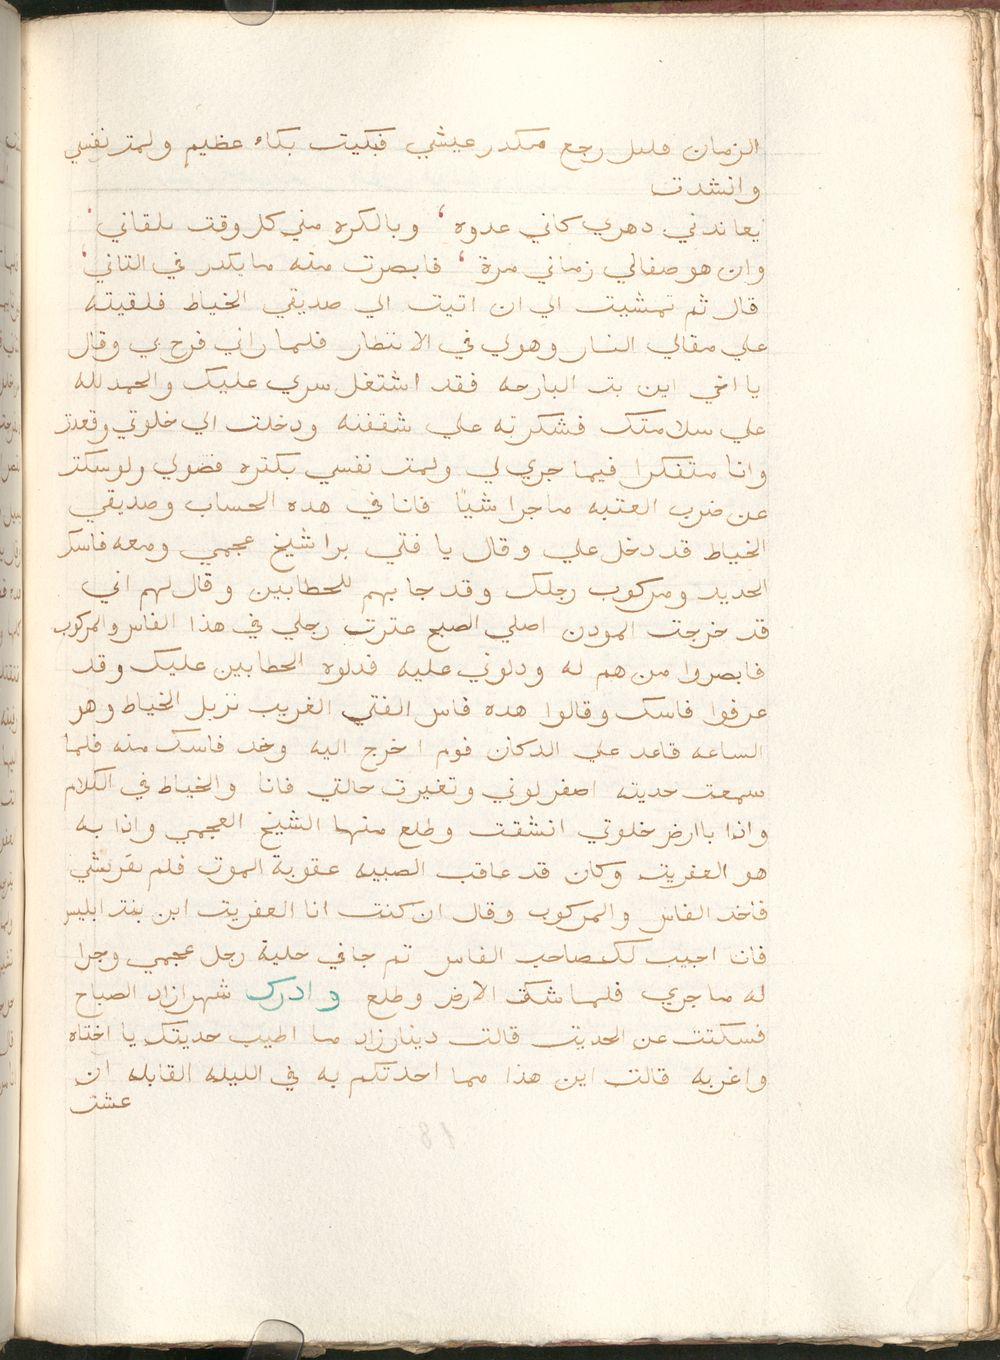 الزمان قليل رجع مكدر عيشي فبكيت بكاء عظيم ولمت نفسي
وانشدت
يعاندني دهري كاني عدوه ‘ وبالكره مني كل وقت يلقاني ‘
وان هو صفالي زماني مرة ‘ فابصرت منه ما يكدر في الثاني ‘
قال ثم تمشيت الي ان اتيت الي صديقي الخياط فلقيته
علي مقالي النار وهولي في الانتظار فلما راني فرح بي وقال
يا اخي اين بت البارحه فقد اشتغل سري عليك والحمد لله
علي سلامتك فشكرته علي شقفنه ودخلت الي خلوتي وقعدت
وانا متفكرا فيما جري لي ولمت نفسي بكتره فضولي ولو سكت
عن ضرب العتبه ما جرا شيًا فانا في هده الحساب وصديقي
الخياط قد دخل علي وقال يا فتي برا شيخ عجمي ومعه فاسك
الحديد ومركوب رجلك وقد جا بهم للحطابين وقال لهم اني
قد خرجت المودن اصلي الصبح عترت رجلي في هذا الفاس والمركوب
فابصروا من هم له ودلوني عليه فدلوه الحطابين عليك وقد
عرفوا فاسك وقالوا هده فاس الفتي الغريب نزيل الخياط وهو
الساعه قاعد علي الدكان قوم اخرج اليه وخد فاسك منه فلما
سمعت حديته اصفر لوني وتغيرت حالتي فانا والخياط في الكلام
واذا باارض خلوتي انشقت وطلع منها الشيخ العجمي واذا به
هو العفريت وكان قد عاقب الصبيه عقوبة الموت فلم تقر بشي
فاخد الفاس والمركوب وقال ان كنت انا العفريت ابن بنت ابليس
فانا اجيب لك صاحب الفاس تم جا في حلية رجل عجمي وجرا
له ما جري فلما شك الارض وطلع وادرك شهرازاد الصباح
فسكتت عن الحديت قالت دينارزاد ما اطيب حديتك يا اختاه
واغربه قالت اين هذا مما احدتكم به في الليله القابله ان
عشت